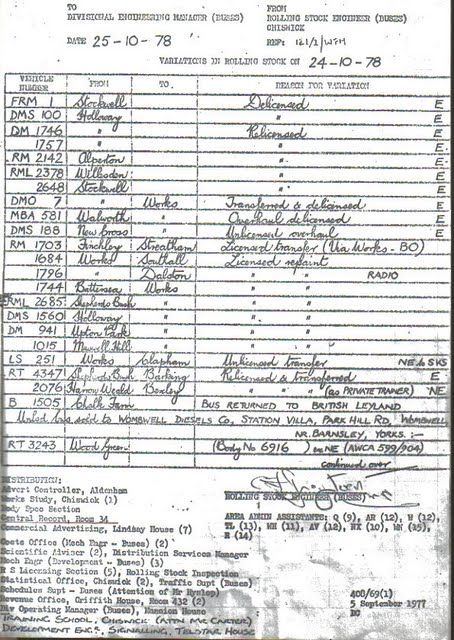 TO FROM
DIVISIONAL ENGINEERING MANAGER (BUSES) ROLLING STOCK ENGINEER (BUSES)
CHISWICK
DATE 25-10-78 REF: 121/2/WFH
VARIATIONS IN ROLLING STOCK ON 24-10-78
VEHICLE NUMBER FROM TO REASON FOR VARIATION
FRM 1 Stockwell Delicensed E
DMS 100 Holloway " E
DM 1746 " Relicensed E
1757 " " E
RM 2142 Alperton " E
RML 2378 Willesden " E
2648 Stockwell " E
DMO 7 " Works Transferred & delicensed E
MBA 581 Walworth " Overhaul delicensed E
DMS 188 New Cross " Unlicensed overhaul E
RM 1703 Finchley Streatham Licensed transfer (Via Works - BO)
1684 Works Southall Licensed repaint
1796 " Dalston " " RADIO
1744 Battersea Works " "
RML 2685 Shepherds Bush " " "
DMS 1560 Holloway " " "
DM 941 Upton Park " " "
1015 Muswell Hill " " "
LS 251 Works Clapham Unlicensed transfer NE & SKS
RT 4347 Shepherds Bush Barking Relicensed & transferred E
2076 Harrow Weald Bexley " " (as PRIVATE TRAINER) NE
B 1505 Chalk Farm BUS RETURNED TO BRITISH LEYLAND
Unlsd bus sold to WOMBWELL DIESELS CO, STATION VILLA, PARK HILL RD, WOMBWELL
NR. BARNSLEY, YORKS. :-
RT 3243 Wood Green (Body No 6916) NE (AWCA 599/904)
continued over
DISTRIBUTION:
Advert Controller, Aldenham
Works Study, Chiswick (1)
Body Spec Section
Central Record, Room 34
Commercial Advertising, Lindsay House (7)
Costs Office (Mech Engr - Buses) (2)
Scientific Adviser (2), Distribution Services Manager
Mech Engr (Development - Buses) (3)
R S Licensing Section (5), Rolling Stock Inspection
Statistical Office, Chiswick (2), Traffic Dept (Buses)
Schedules Supt - Buses (Attention of Mr Hyslop)
Revenue Office, Griffith House, Room 432 (2)
Div Operating Manager (Buses), Mansion House
TRAINING SCHOOL, CHISWICK (ATTN MR CARTER)
DEVELOPMENT ENGR, SIGNALLING, TELSTAR HOUSE
ROLLING STOCK ENGINEER (BUSES)
AREA ADMIN ASSISTANTS: Q (9), AR (12), W (12),
TL (13), WH (11), AV (12), HX (10), WN (15),
R (14)
408/69(1)
5 September 1977
BO